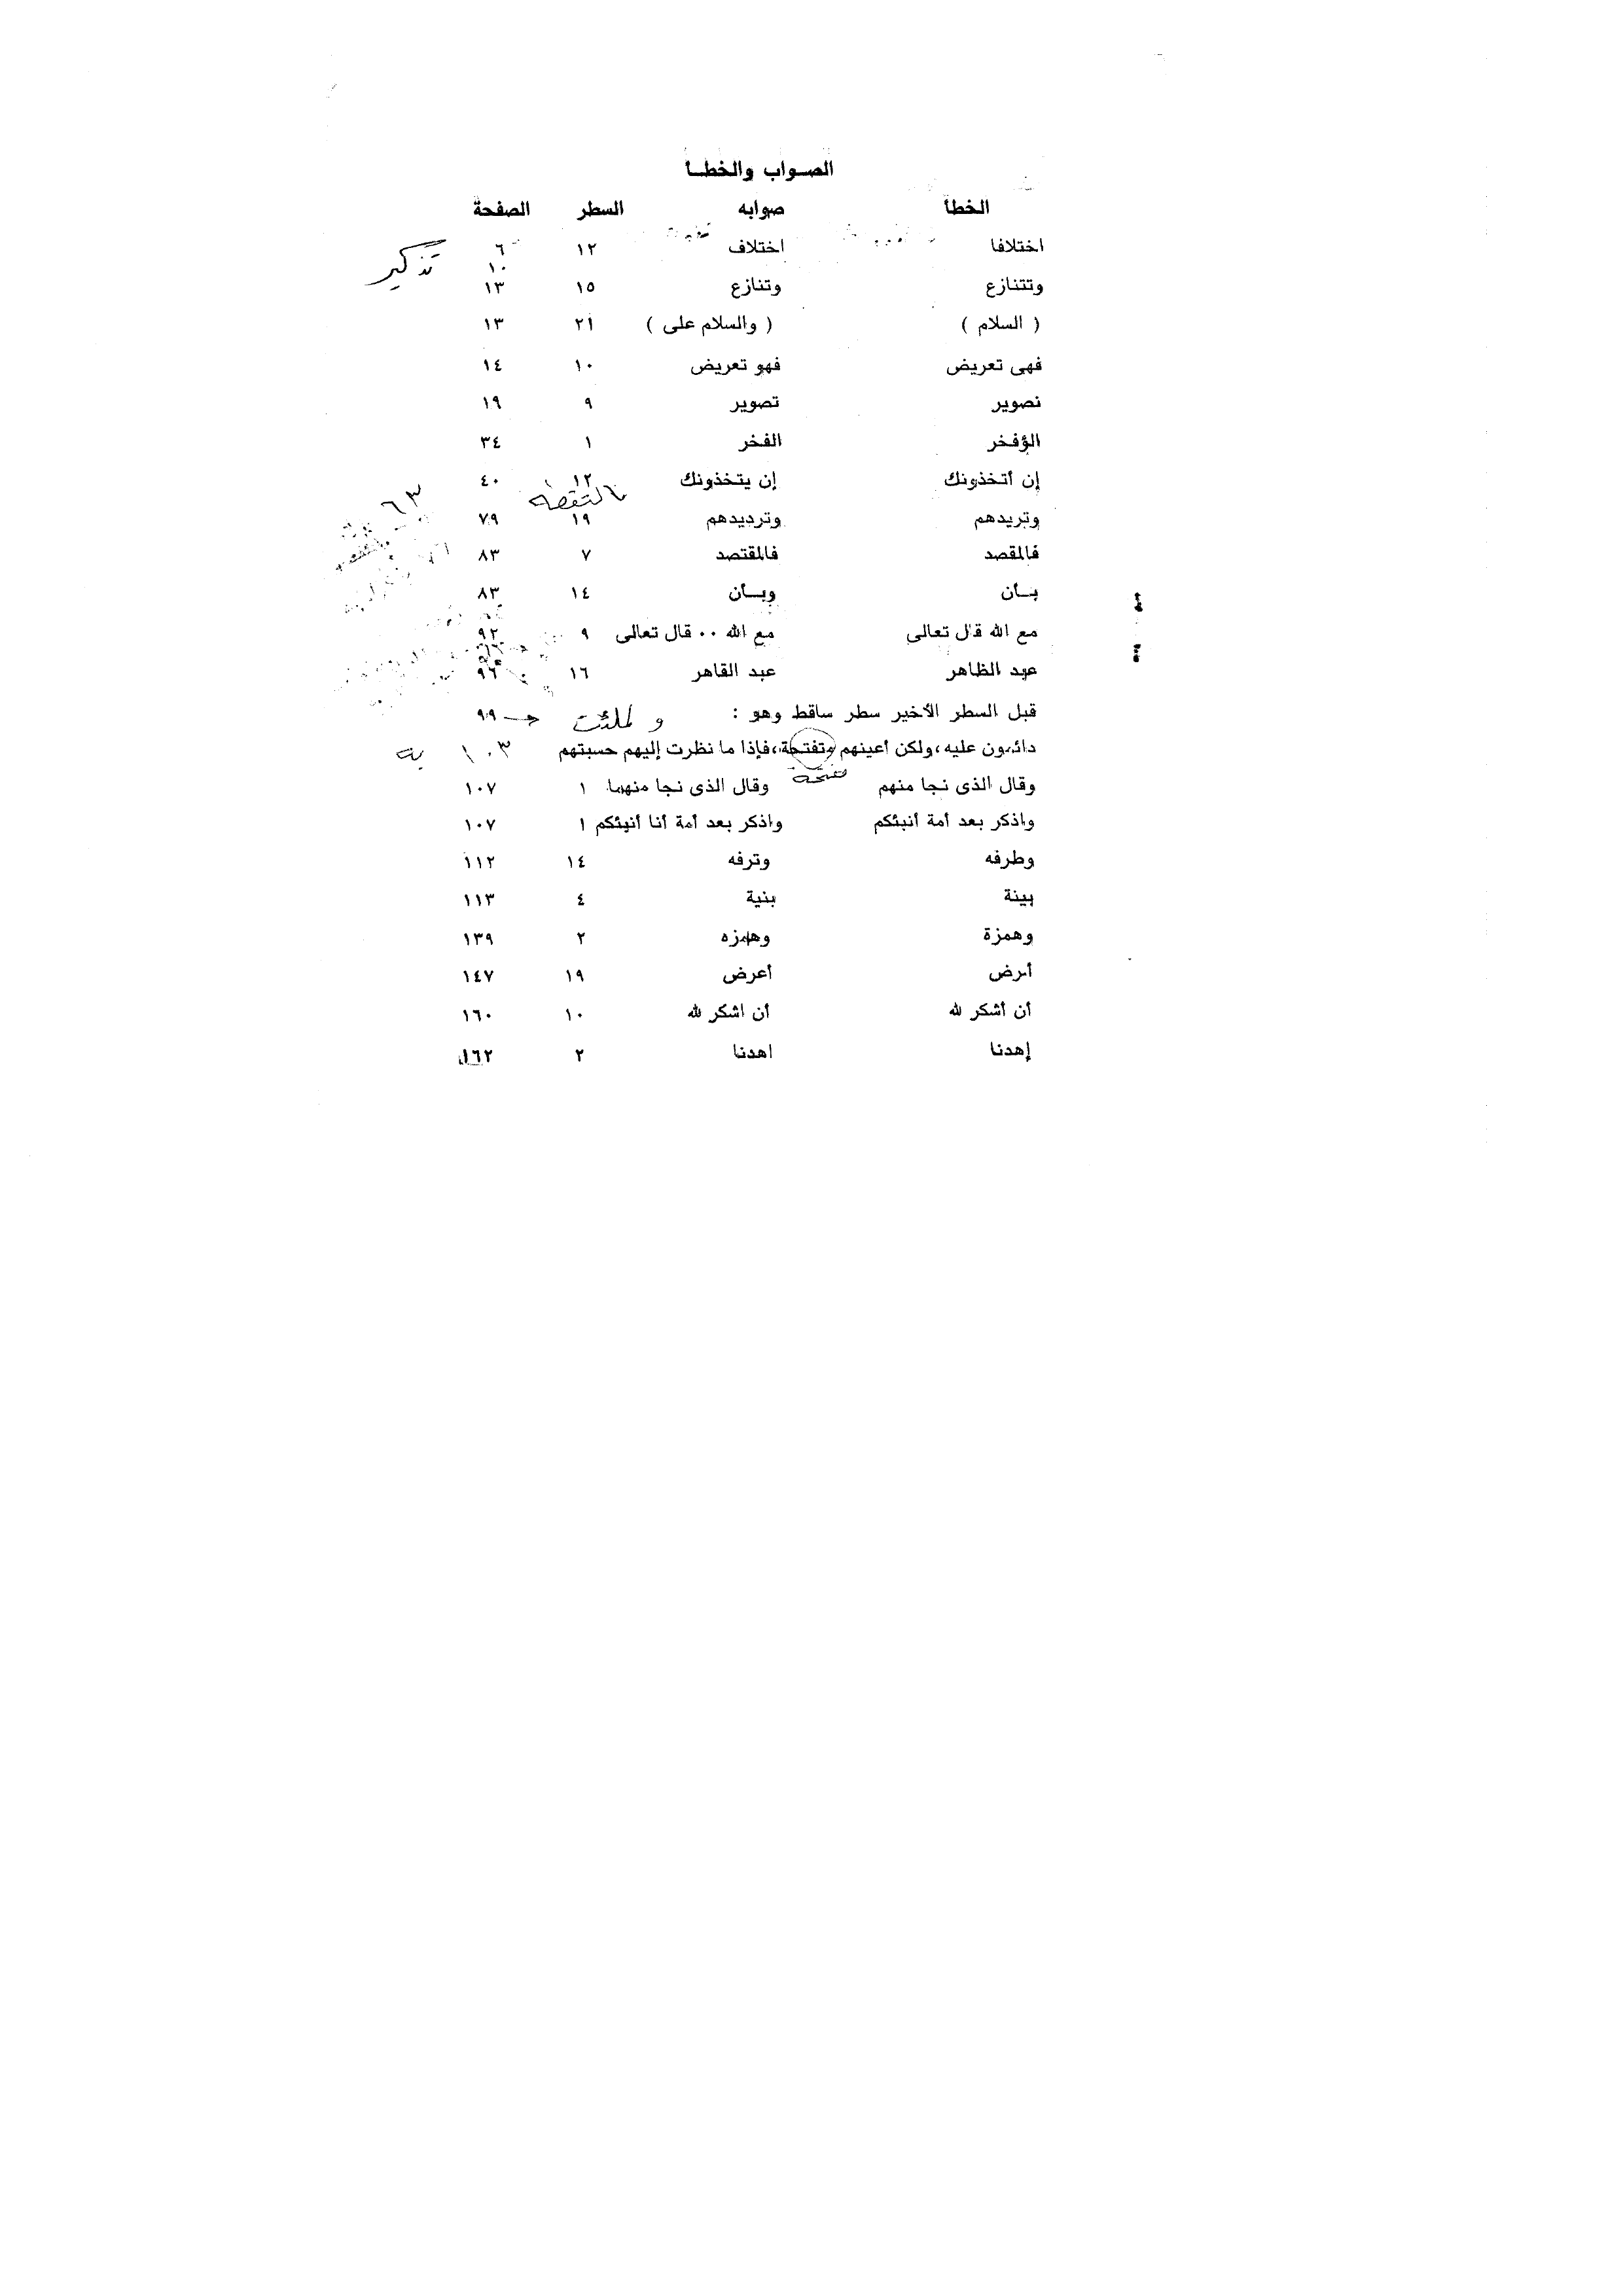 الصـواب والخطـأ
الخطأ صوابه السطر الصفحة
اختلافا اختلاف ١٢ ٦
تذكير ١٠
وتتنازع وتنازع ١٥ ١٣
( السلام ) ( والسلام على ) ٢١ ١٣
فهى تعريض فهو تعريض ١٠ ١٤
نصوير تصوير ٩ ١٩
الؤفخر الفخر ١ ٣٤
إن أتخذونك إن يتخذونك ١٢ ٤٠
٦٣
وتريدهم وترديدهم ١٩ ٧٩
فالمقصد فالمقتصد ٧ ٨٣
بـأن وبـأن ١٤ ٨٣
مع الله قال تعالى مع الله ٠٠ قال تعالى ٩ ٩٢
عبد الظاهر عبد القاهر ١٦ ٩٦
قبل السطر الأخير سطر ساقط وهو : و لملئت ٩٩
دائرون عليه ، ولكن أعينهم وتفتحة ، فإذا ما نظرت إليهم حسبتهم ١٠٣
وقال الذى نجا منهم وقال الذى نجا منهما ١ ١٠٧
واذكر بعد أمة أنبئكم واذكر بعد أمة أنا أنبئكم ١ ١٠٧
وطرفه وترفه ١٤ ١١٢
بينة بنية ٤ ١١٣
وهمزة وهامزه ٢ ١٣٩
أرض أعرض ١٩ ١٤٧
أن أشكر لله أن اشكر لله ١٠ ١٦٠
إهدنا اهدنا ٢ ١٦٢